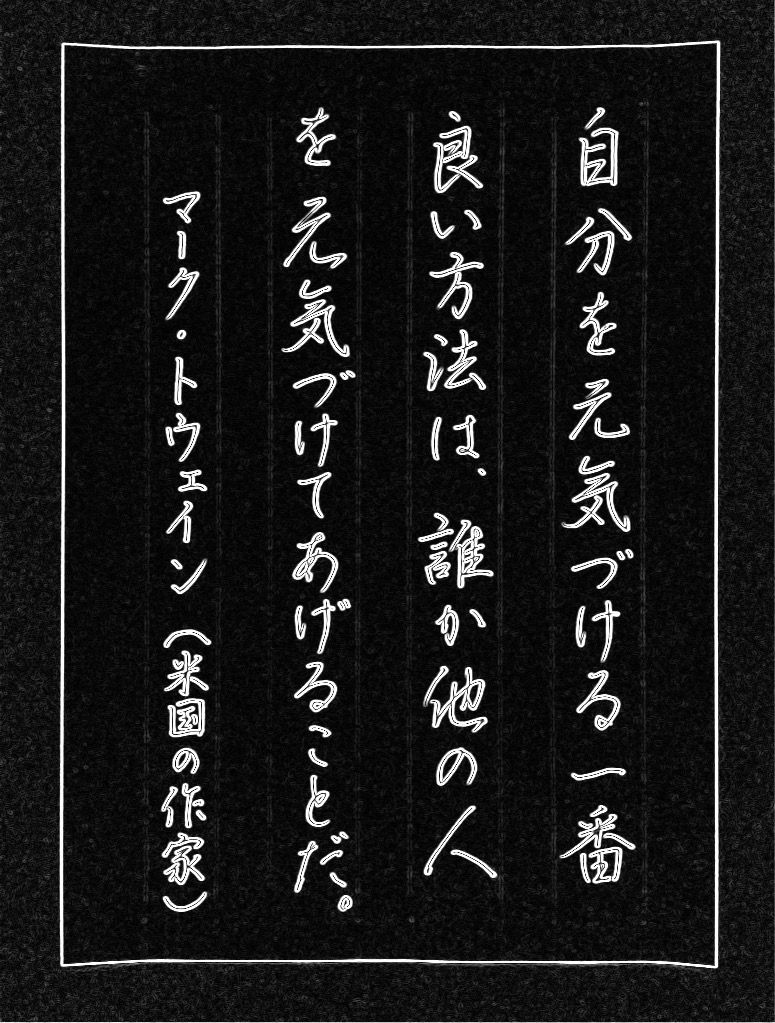 自分を元気づける一番
良い方法は、誰か他の人
を元気づけてあげることだ。
マーク・トウェイン（米国の作家）